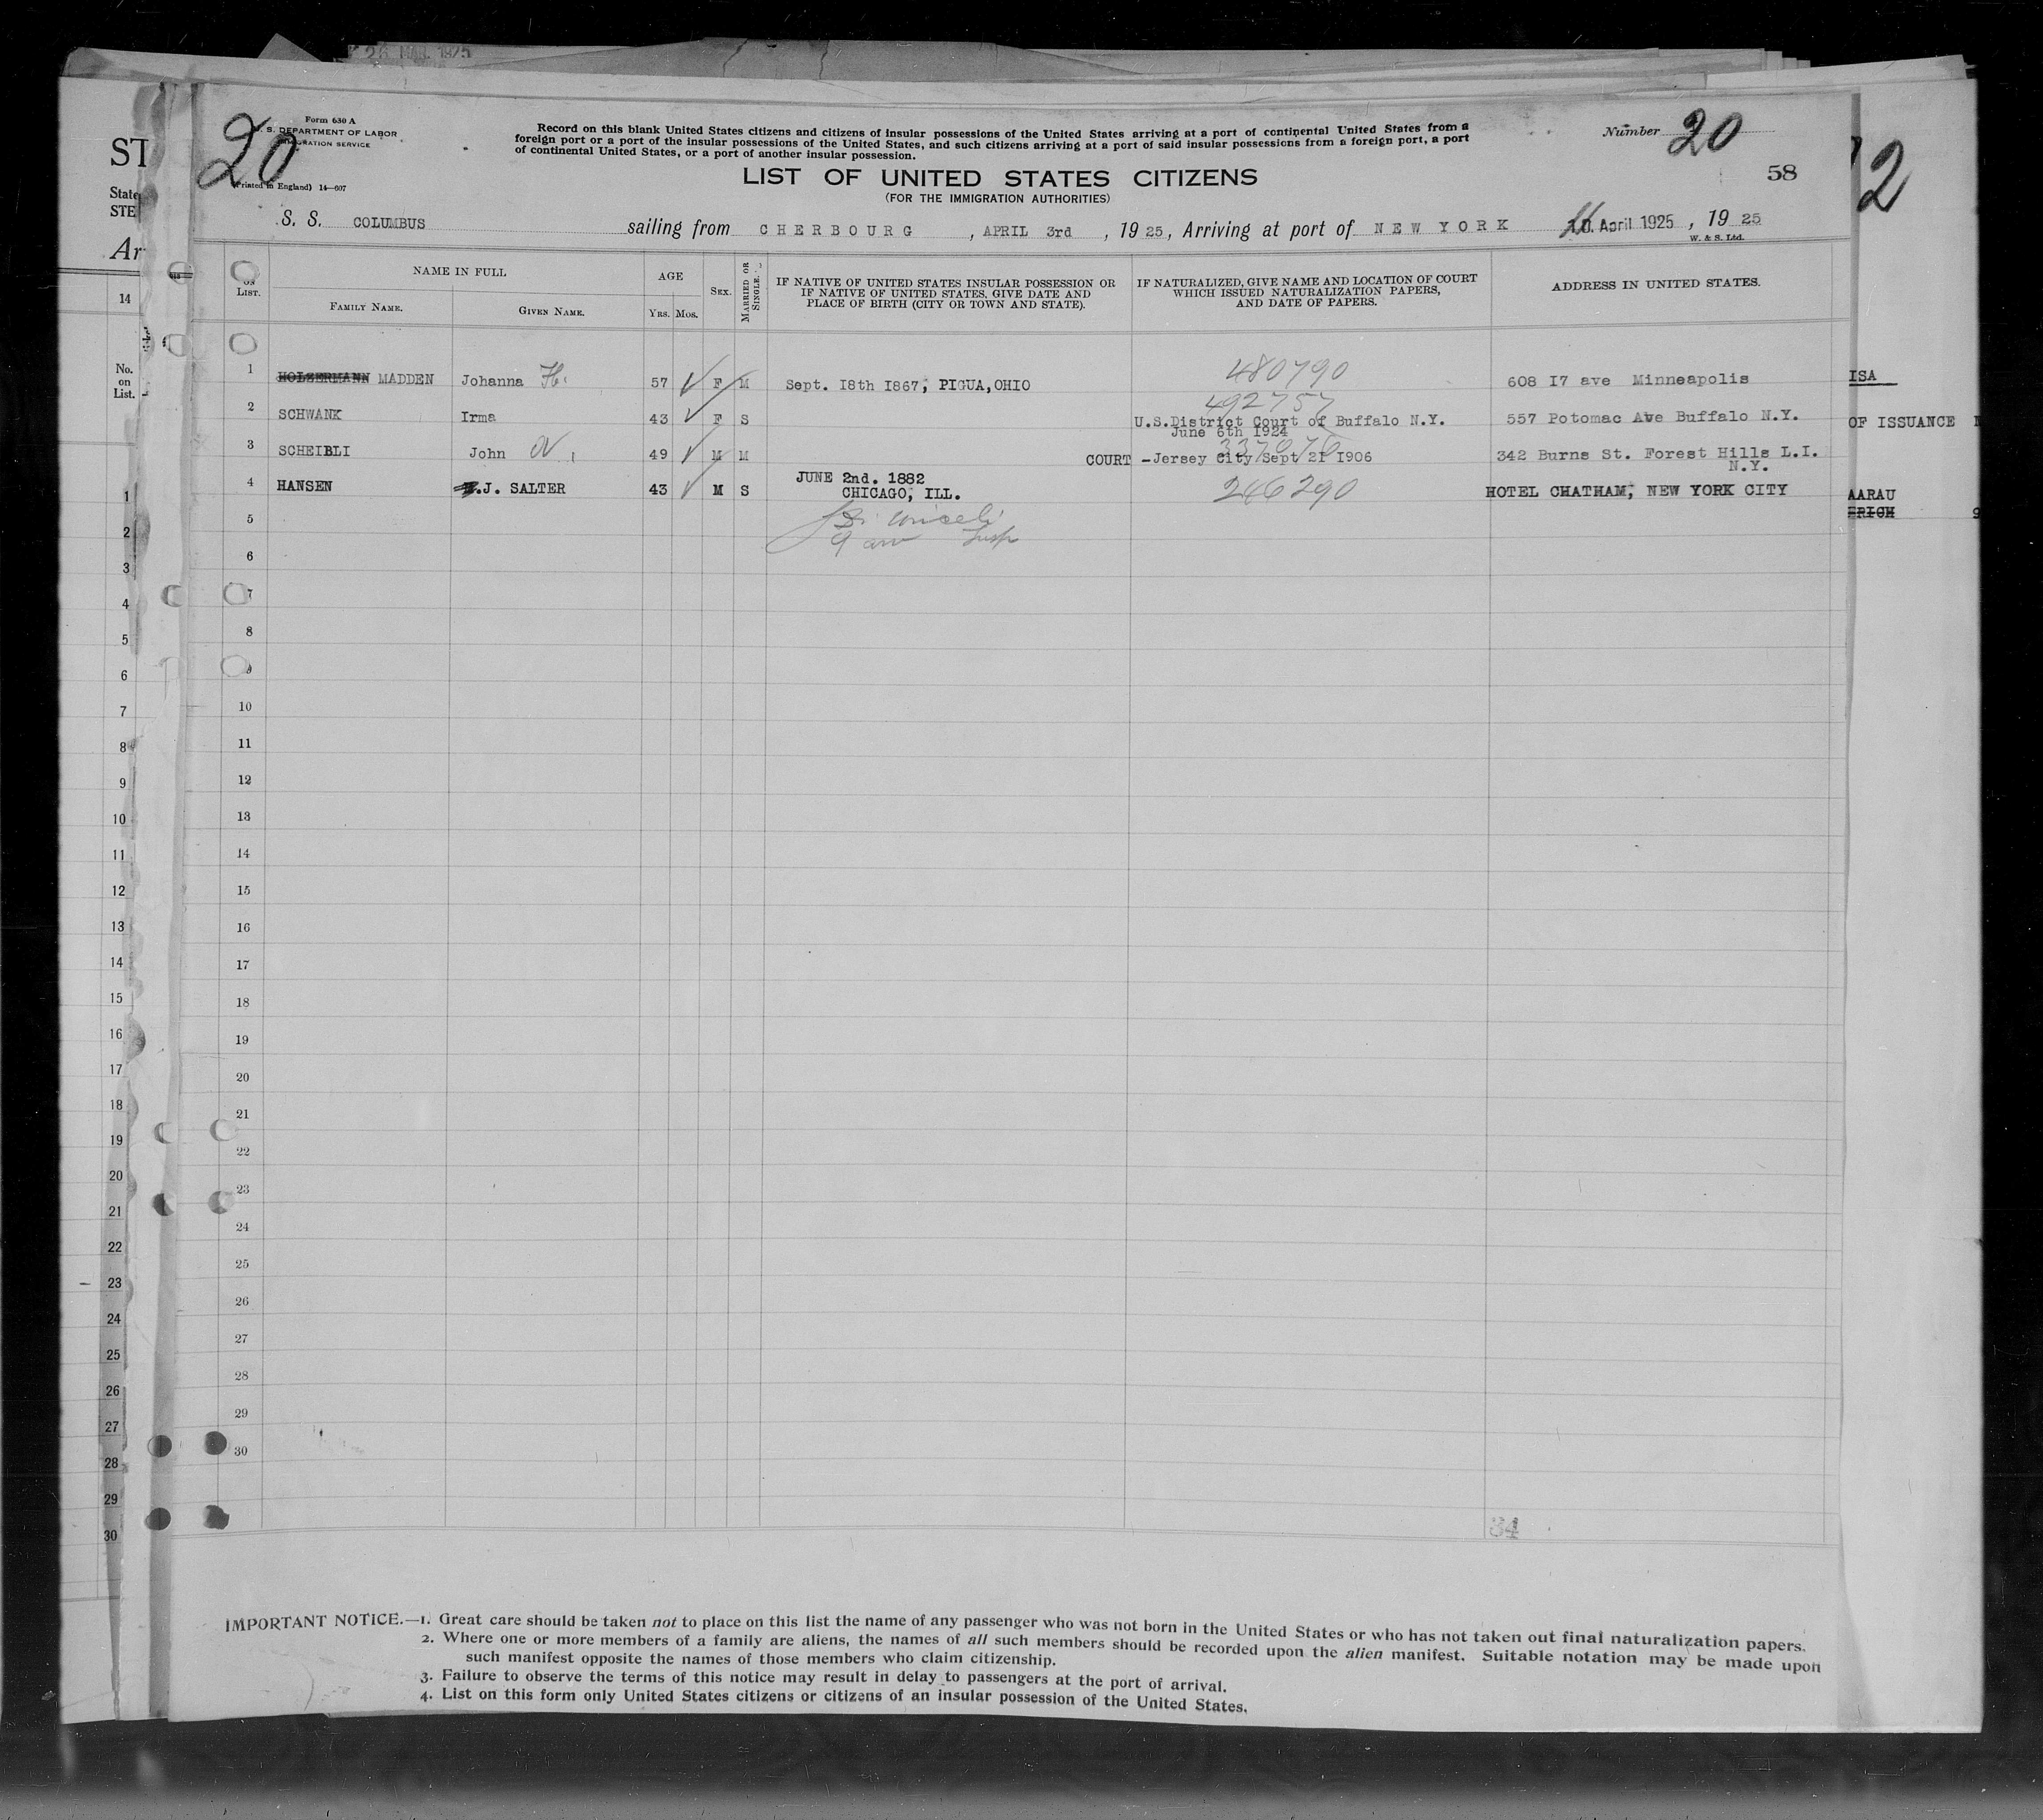 26 MAR. 1925
Form 630 A
S. DEPARTMENT OF LABOR
IMMIGRATION SERVICE
(Printed in England) 14—607
20
Record on this blank United States citizens and citizens of insular possessions of the United States arriving at a port of continental United States from a
foreign port or a port of the insular possessions of the United States, and such citizens arriving at a port of said insular possessions from a foreign port, a port
of continental United States, or a port of another insular possession.
Number 20
58
LIST OF UNITED STATES CITIZENS
(FOR THE IMMIGRATION AUTHORITIES)
S. S. COLUMBUS sailing from CHERBOURG, APRIL 3rd, 1925, Arriving at port of NEW YORK April 1925, 1925
W. & S. Ltd.
ON LIST.
NAME IN FULL
FAMILY NAME.
GIVEN NAME.
AGE
YRS. MOS.
SEX.
MARRIED OR SINGLE.
IF NATIVE OF UNITED STATES INSULAR POSSESSION OR
IF NATIVE OF UNITED STATES, GIVE DATE AND
PLACE OF BIRTH (CITY OR TOWN AND STATE).
IF NATURALIZED, GIVE NAME AND LOCATION OF COURT
WHICH ISSUED NATURALIZATION PAPERS,
AND DATE OF PAPERS.
ADDRESS IN UNITED STATES.
1 HOLZERMANN MADDEN Johanna H. 57 F M Sept. I8th I867, PIGUA,OHIO 480790 608 I7 ave Minneapolis
492757
2 SCHWANK Irma 43 F S U.S.District Court of Buffalo N.Y. 557 Potomac Ave Buffalo N.Y.
June 6th 1924
337070
3 SCHEIBLI John 49 M M COURT -Jersey City Sept 21 I906 342 Burns St. Forest Hills L.I.
N.Y.
4 HANSEN .J. SALTER 43 M S JUNE 2nd. 1882 246290 HOTEL CHATHAM, NEW YORK CITY
CHICAGO, ILL.
5
6
7
8
9
10
11
12
13
14
15
16
17
18
19
20
21
22
23
24
25
26
27
28
29
30
34
IMPORTANT NOTICE.—1. Great care should be taken not to place on this list the name of any passenger who was not born in the United States or who has not taken out final naturalization papers.
2. Where one or more members of a family are aliens, the names of all such members should be recorded upon the alien manifest. Suitable notation may be made upon
such manifest opposite the names of those members who claim citizenship.
3. Failure to observe the terms of this notice may result in delay to passengers at the port of arrival.
4. List on this form only United States citizens or citizens of an insular possession of the United States.
ST
State
STE
Ar
14
No.
on
List.
1
2
3
4
5
6
7
8
9
10
11
12
13
14
15
16
17
18
19
20
21
22
23
24
25
26
27
28
29
30
2
ISA
OF ISSUANCE
AARAU
ERICH 9